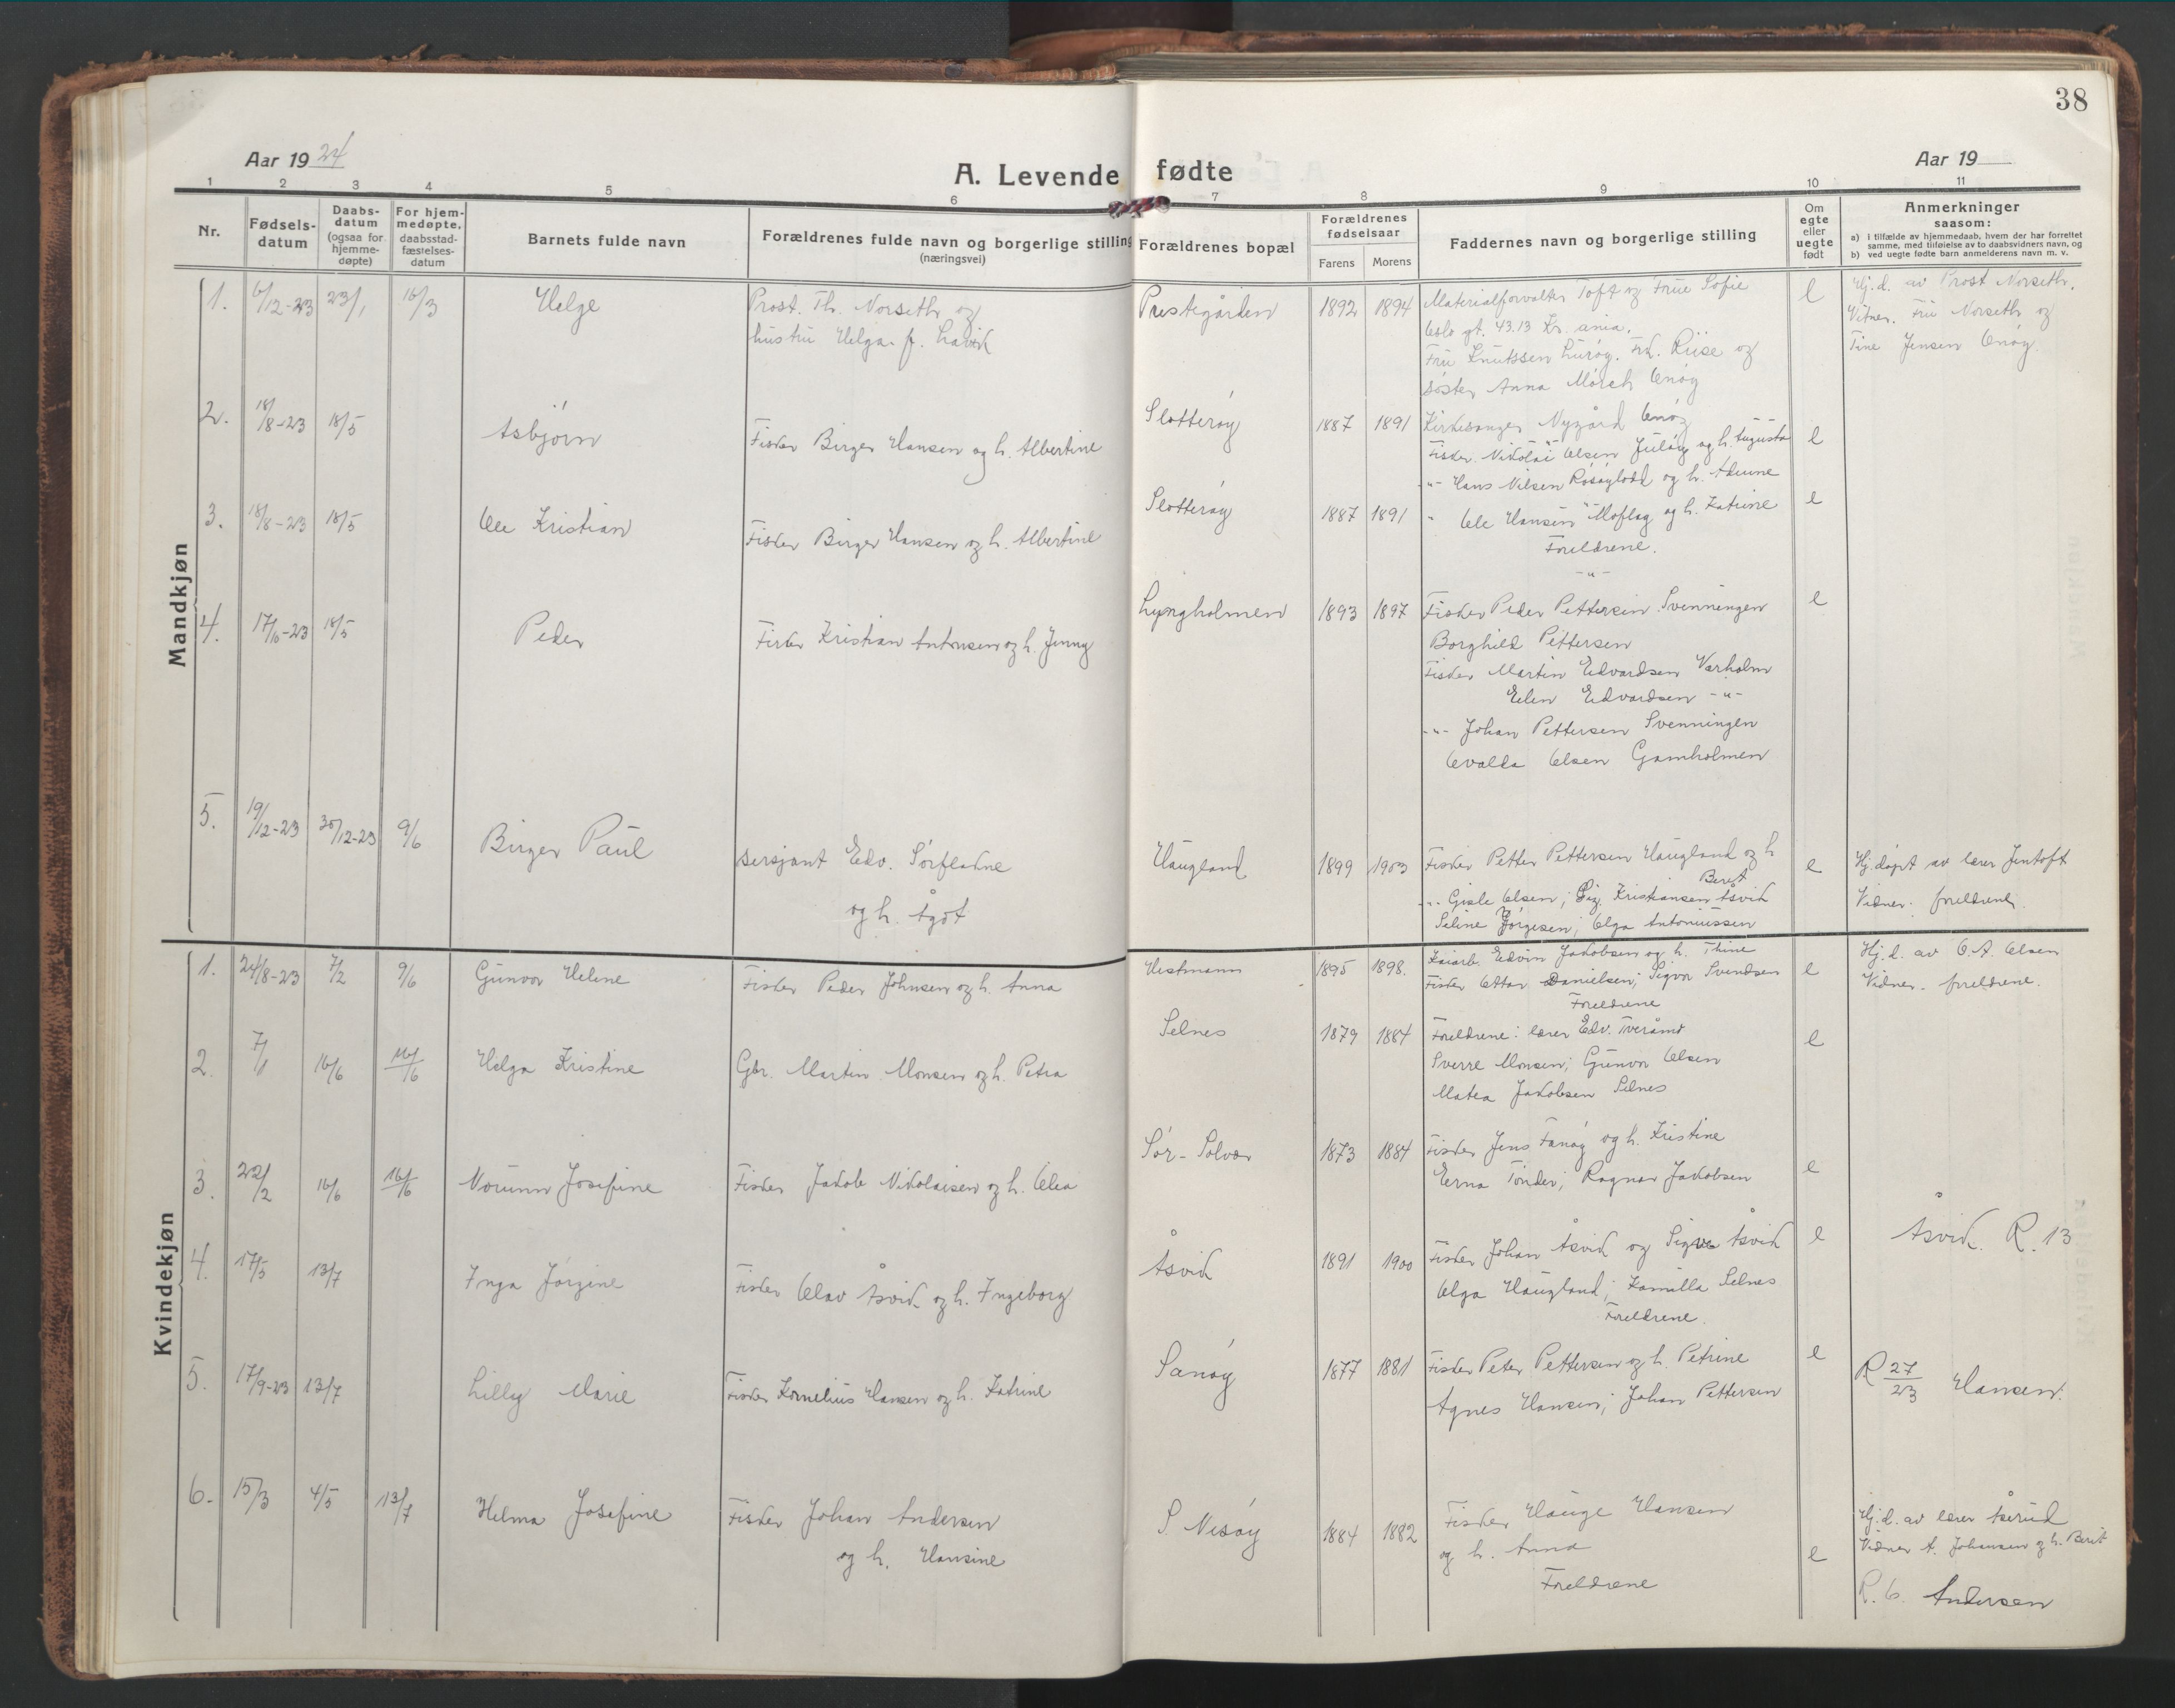 38
Aar 19 24
A. Levende fødte
Aar 19
1 2 3 4 5 6 7 8 9 10 11
Nr.
Fødsels-
datum
Daabs-
datum
(ogsaa for
hjemme-
døpte)
For hjem-
medøpte,
daabsstad-
fæstelses-
datum
Barnets fulde navn
Forældrenes fulde navn og borgerlige stilling
(næringsvei)
Forældrenes bopæl
Forældrenes
fødselsaar
Farens Morens
Faddernes navn og borgerlige stilling
Om
egte
eller
uegte
født
Anmerkninger
saasom:
a) i tilfælde av hjemmedaab, hvem der har forrettet
samme, med tilføielse av to daabsvidners navn, og
b) ved uegte fødte barn anmelderens navn m. v.
Mandkjøn
1. 6/12-23 23/1 16/3 Helge
Prost. Th. Norseth og
hustru Helga f. Lavik
Prestegården 1892 1894
Materialforvalter Toft og Frue Sofie
Oslo gt. 43.13 Kr. ania.
Fru Knutssen Lurøy. Frk. Riise og
søster Anna Mörch Onøy
e
Hj. d. av Prost Norseth.
Vitner. Fru Norseth og
Tine Jensen Onøy.
2. 18/8-23 18/5 Asbjørn
Fisker Birger Hansen og h. Albertine
Slotterøy 1887 1891
Kirkesanger Nygård Onøy
Fisker Nikolai Olsen Juløy og h. Augusta
-"- Hans Nilsen Råsøylodd og h.
e
3. 18/8-23 18/5 Ole Kristian
Fisker Birger Hansen og h. Albertine
Slotterøy 1887 1891
" Ole Hansen Moflag og h. Katrine
Foreldrene.
-"-
e
4. 17/6-23 18/5 Peder
Fisker Kristian Antonsen og h. Jenny
Lyngholmen 1893 1897
Fisker Peder Pettersen Svenningen
Borghild Pettersen
Fisker Martin Edvardsen Varholm
Elen Edvardsen -"-
-"- Johan Pettersen Svenningen
Ovalda Olsen Gamholmen
e
5. 19/12-23 30/12-23 9/6 Birger Paul
sersjant Edv. Sørfladne
og h. Ågot
Haugland 1899 1903
Fisker Petter Pettersen Haugland og h
Berit
-"- Gisle Olsen; Sig. Kristiansen Åsvik
Seline Jørgesen; Olga Antoniussen
e
Hj.døpt av lærer Jentoft
Vidner: foreldrene.
Kvindekjøn
1. 24/8-23 7/2 9/6 Gunvor Helene
Fisker Peder Johnsen og h. Anna
Hestmann 1895 1898.
Kaiarb. Edvin Jakobsen og h. Thine
Fisker Ottar Danielsen; Sigvor Svendsen
Foreldrene
e
Hj. d. av O. A. Olsen
Vidner. foreldrene.
2. 7/1 16/6 16/6 Helga Kristine
Gbr. Martin Monsen og h. Petra
Selnes 1879 1884
Foreldrene: lærer Edv. Tveråmo
Sverre Monsen; Gunvor Olsen
Matea Jakobsen Selnes
e
3. 22/2 16/6 16/6 Norunn Josefine
Fisker Jakob Nikolaisen og h. Olea
Sør-Solvær 1873 1884
Fisker Jens Fanøy og h. Kristine
Erna Tønder; Ragnar Jakobsen
e
4. 17/5 13/7 Inga Jørgine
Fisker Olav Åsvik og h. Ingeborg
Åsvik 1891 1900
Fisker Johan Åsvik og Signe Åsvik
Olga Haugland; Kamilla Selnes
Foreldrene.
e
Åsvik. R. 13
5. 17/9-23 13/7 Lilly Marie
Fisker Kornelius Hansen og h. Katrine
Sanøy 1877 1881
Fisker Peter Pettersen og h. Petrine
Agnes Hansen; Johan Pettersen
e
R 27/23 Hansen.
6. 15/3 4/5 13/7 Helma Josefine
Fisker Johan Andersen
og h. Hansine
S. Nesøy 1884 1882
Fisker Hauge Hansen
og h. Anna
Foreldrene
e
Hj. d. av lærer Åserud
Vidner A. Johansen og h. Berit
R. 6. Andersen